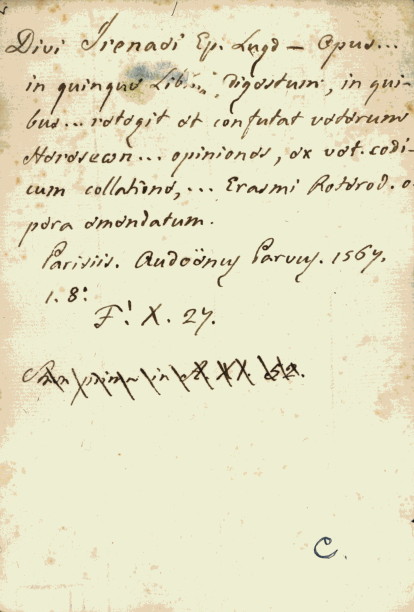 Divi Irenaei Ep. Lugd – Opus...
in quinque Libros digestum, in qui-
bus... retegit et confutat veterum
Hereseωn... opiniones, ex vet. codi-
cum collatione, ... Erasmi Roterod. o-
pera emendatum.
Parisiis. Audoënus Parvus. 1567.
1. 8:
F! X. 27.
in XX. 52.
C.